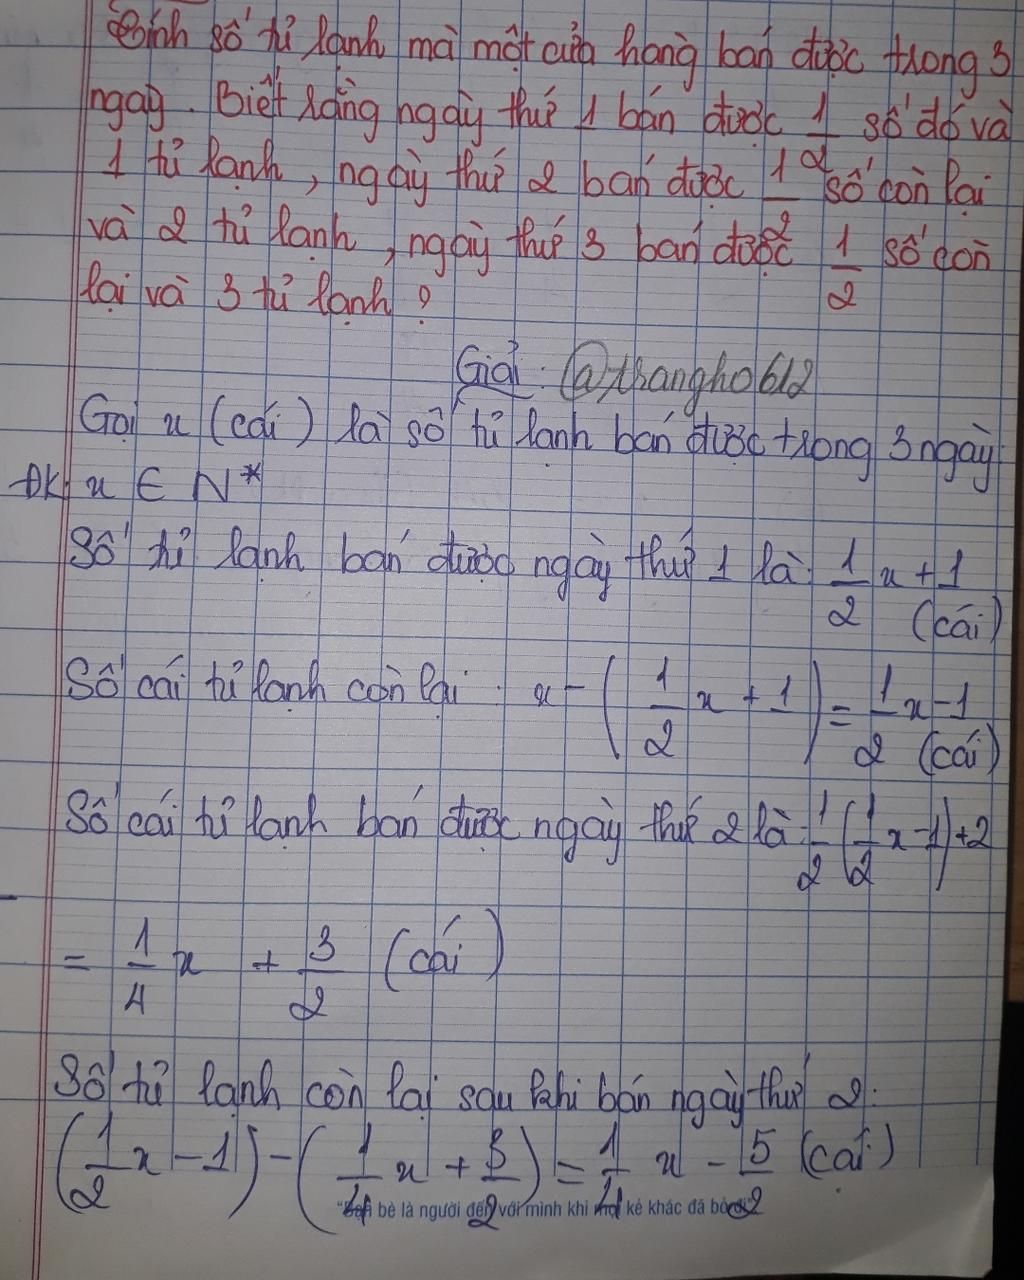 Tính số tủ lạnh mà một cửa hàng bán được trong 3
ngày. Biết rằng ngày thứ 1 bán được 1/2 số đó và
1 tủ lạnh, ngày thứ 2 bán được 1/2 số còn lại
và 2 tủ lạnh, ngày thứ 3 bán được 1/2 số còn
lại và 3 tủ lạnh ?
Giải: @trangho612
Gọi x (cái) là số tủ lạnh bán được trong 3 ngày
ĐK x ∈ N*
Số tủ lạnh bán được ngày thứ 1 là: 1/2 x + 1 (cái)
Số cái tủ lạnh còn lại: x - (1/2 x + 1) = 1/2 x - 1 (cái)
Số cái tủ lạnh bán được ngày thứ 2 là: 1/2 (1/2 x - 1) + 2
= 1/4 x + 3/2 (cái)
Số tủ lạnh còn lại sau khi bán ngày thứ 2:
(1/2 x - 1) - (1/4 x + 3/2) = 1/4 x - 5/2 (cái)
"Bạn bè là người đến với mình khi mọi kẻ khác đã bỏ đi"